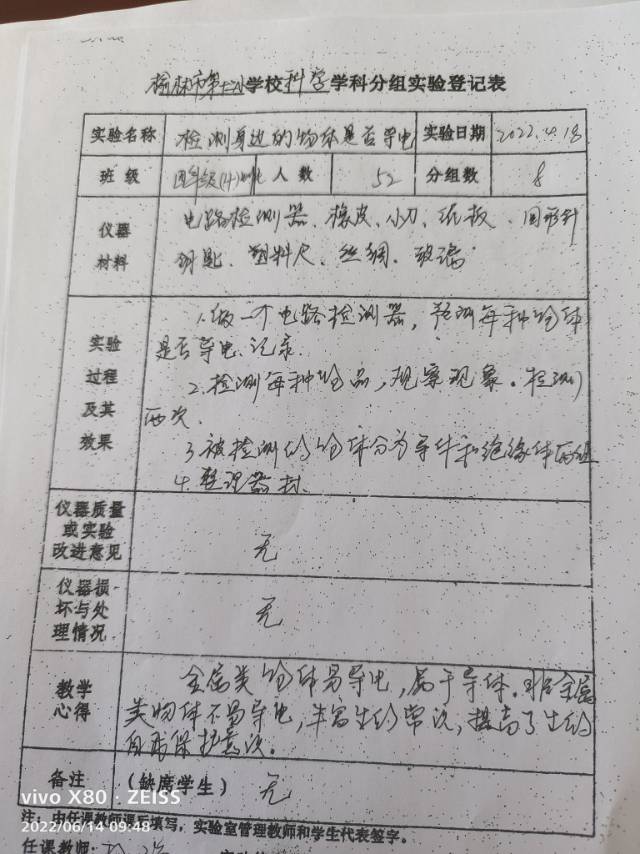 榆林市第十二小学校科学学科分组实验登记表
实验名称 检测身边的物体是否导电 实验日期 2022.4.18
班级 四年级(4)班 人数 52 分组数 8
仪器材料 电路检测器、橡皮、小刀、纸板、回形针
钥匙、塑料尺、丝绸、玻璃
实验过程及其效果
1.做一个电路检测器,预测每种物体
是否导电、记录.
2.检测每种物品,观察现象。检测
两次.
3.被检测的物体分为导体和绝缘体两组
4.整理器材.
仪器质量或实验改进意见 无
仪器损坏与处理情况 无
教学心得 金属类物体易导电,属于导体.非金属
类物体不易导电,丰富生的常识,提高了生的
自我保护意识。
备注 (缺席学生) 无
注:由任课教师课后填写,实验室管理教师和学生代表签字。
任课教师:
vivo X80 · ZEISS
2022/06/14 09:48